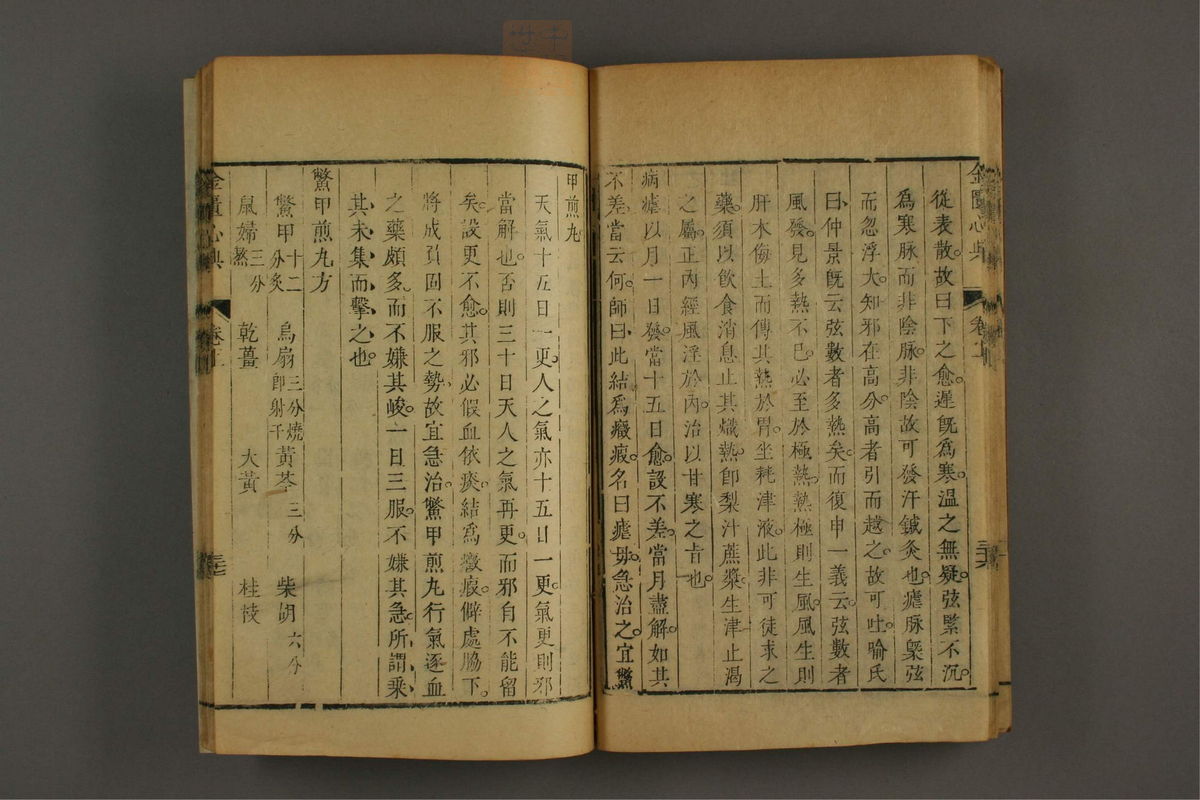 金匱心典
從表散故曰下之愈遲旣爲寒溫之無疑弦緊不沉
爲寒脉而非陰脉非陰故可發汗鍼灸也瘧脉槩弦
而忽浮大知邪在高分高者引而越之故可吐喻氏
曰仲景旣云弦數者多熱矣而復申一義云弦數者
風發見多熱不已必至於極熱熱極則生風風生則
肝木侮土而傳其熱於胃坐耗津液此非可徒求之
藥須以飲食消息止其熾熱卽梨汁蔗漿生津止渴
之屬正內經風淫於內治以甘寒之旨也
病瘧以月一日發當十五日愈設不差當月盡解如其
不差當云何師曰此結爲癥瘕名曰瘧毋急治之宜鱉
甲煎丸
天氣十五日一更人之氣亦十五日一更氣更則邪
當解也否則三十日天人之氣再更而邪自不能留
矣設更不愈其邪必假血依痰結爲癥瘕僻處脇下
將成負固不服之勢故宜急治鱉甲煎丸行氣逐血
之藥頗多而不嫌其峻一日三服不嫌其急所謂乘
其未集而擊之也
鱉甲煎丸方
鱉甲十二分炙 烏扇三分燒卽射干 黃芩三分 柴胡六分
鼠婦三分熬 乾薑 大黃 桂枝
金匱心典 卷上